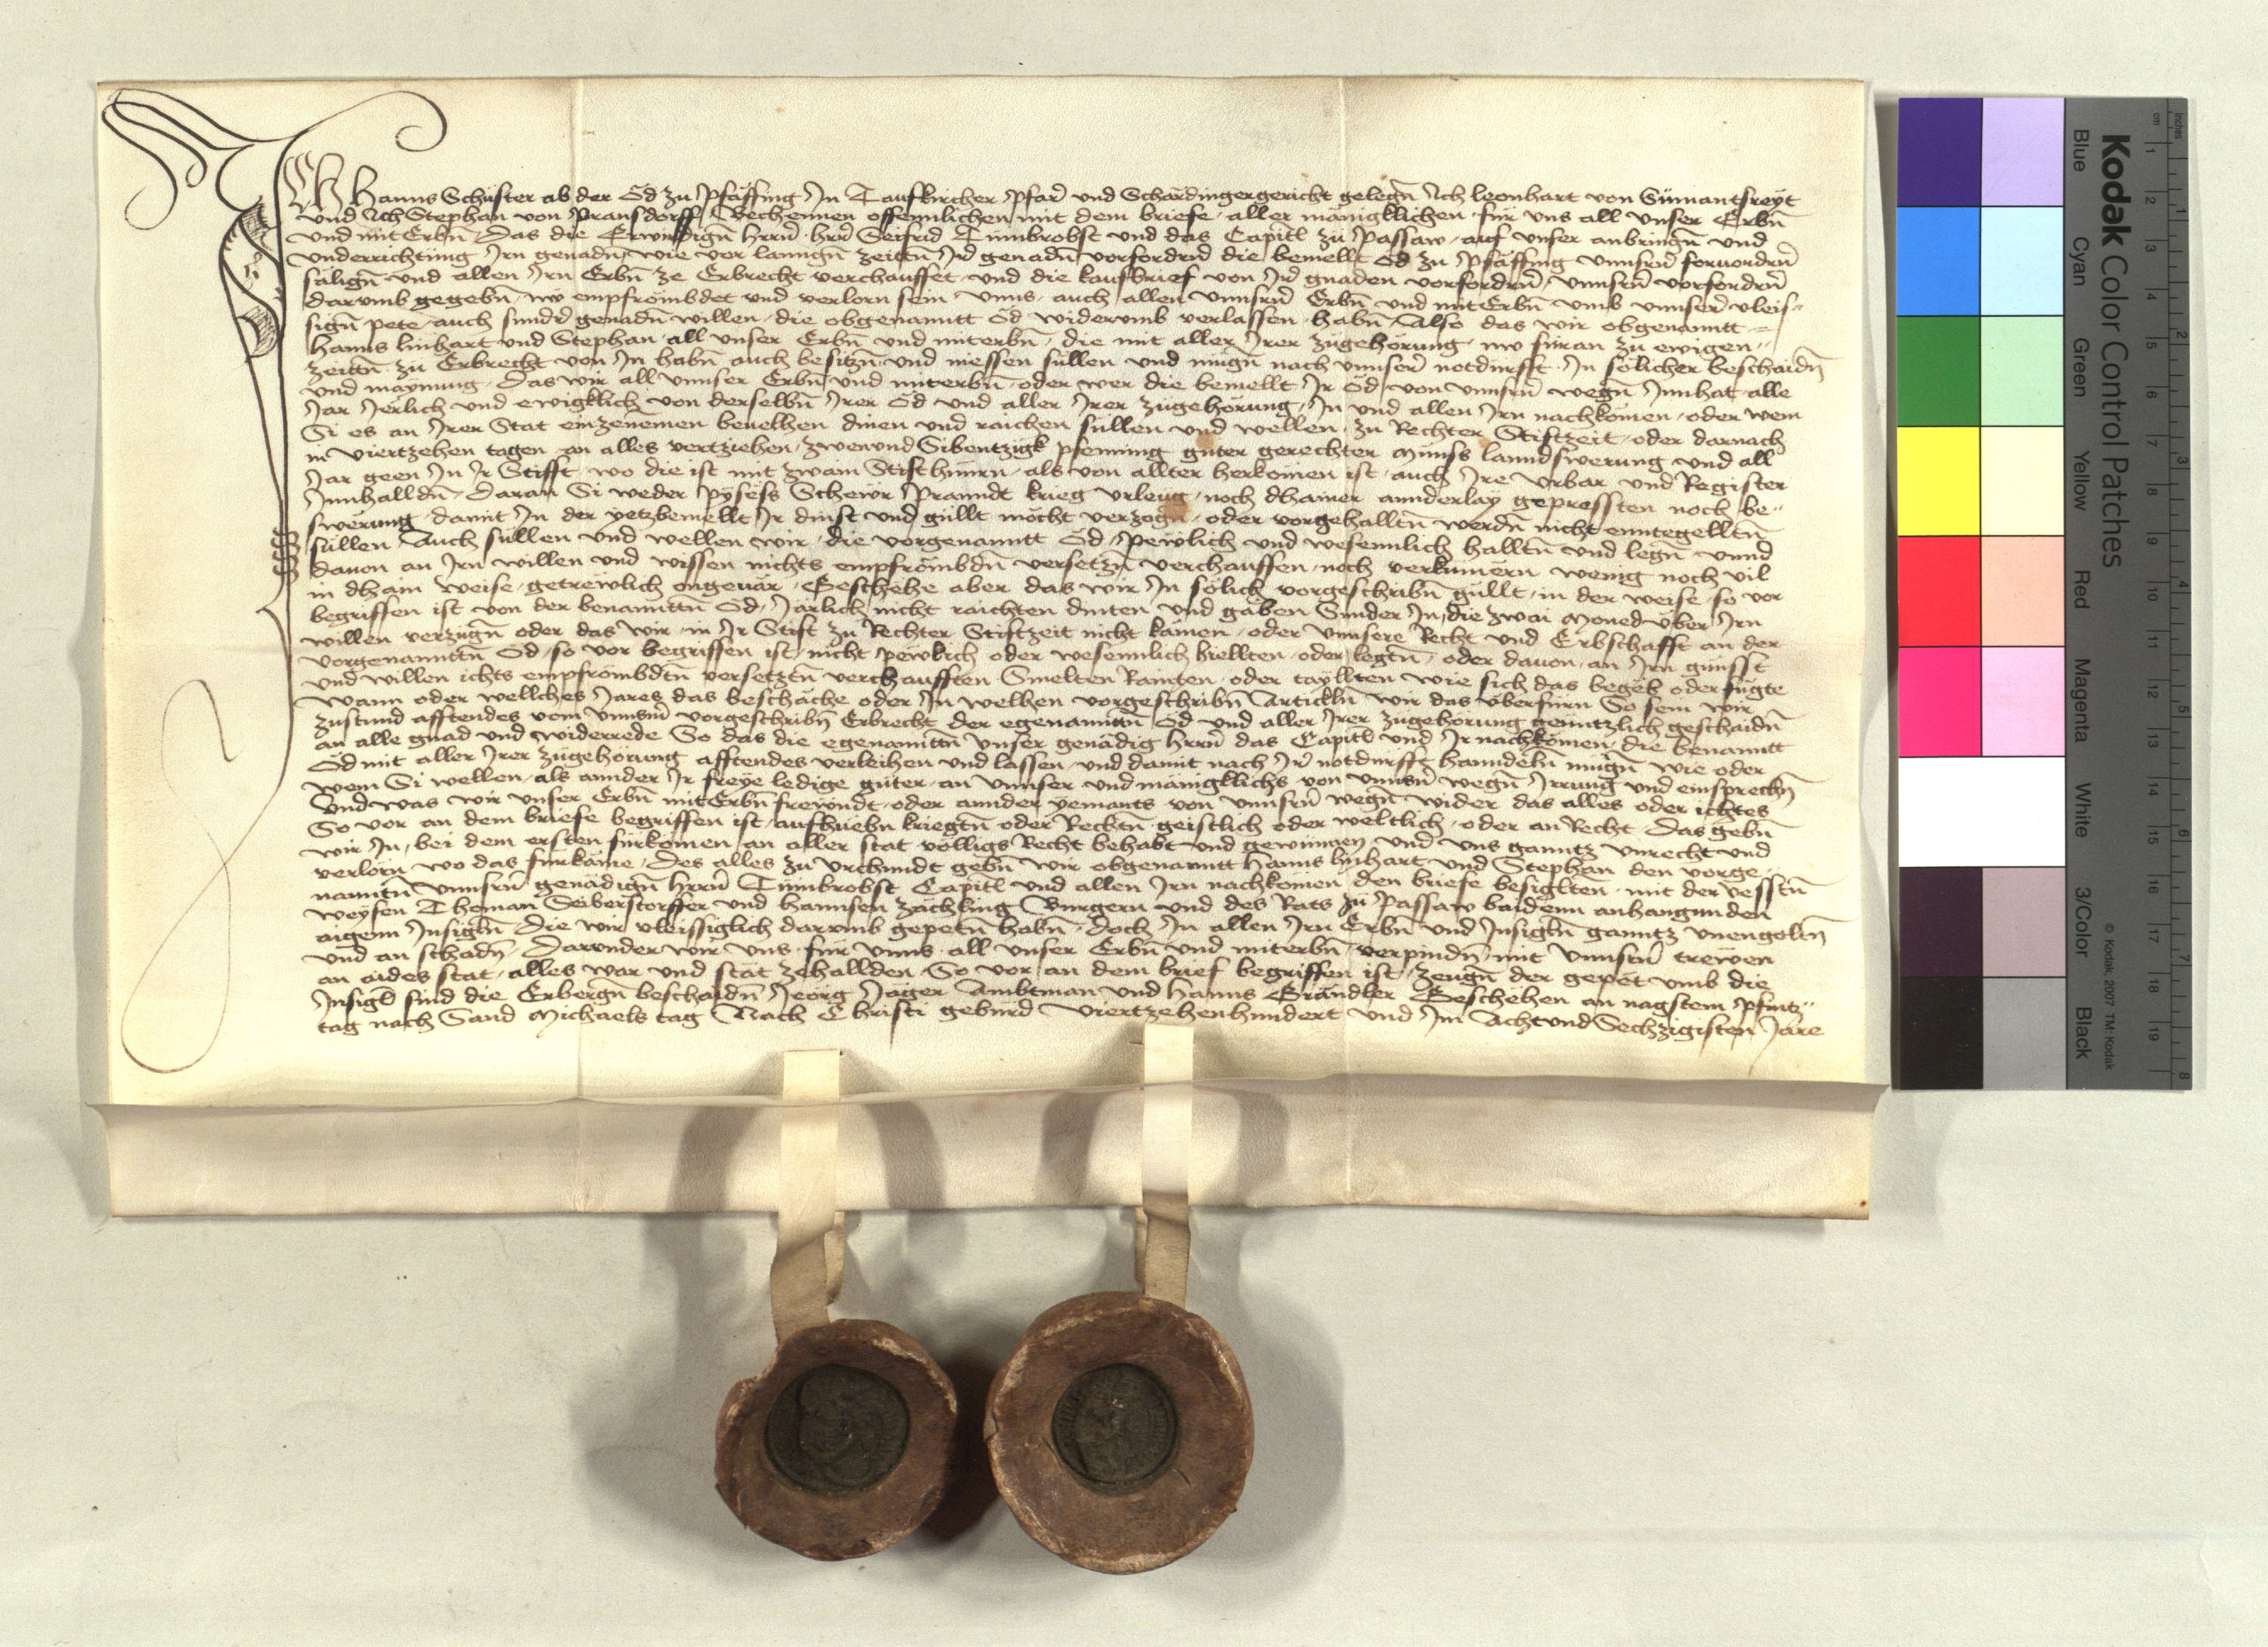 ICh Hanns Schuster ab der Öd zu Pfäffing In Taufkircher Pfarr und Schärdinger gericht gelegn Ich leonhart von Sümantsreyt
und Ich Stephan von Pransdorff Bechennen offennlichen mit dem briefe aller mänigklichen für uns all unser Erbn
und mit Erbn Das die Erwirdign herrn her Seifrid Tümbrobst und das Capitl zu Passaw auf unser anbringn und
underrichtung Irn genadn wie vor lanngn zeittn Irer genadn vorfordrn die bemellt Öd zu Pfäffing unnsrn foruordrn
sälign und allen Irn Erbn ze Erbrecht verchauffet und die kaufbrief von Irer gnaden vorfordrn unnsrn vorfordrn
darumb gegebn nw empfrömbdet und verlorn sein unns auch allen unnsrn Erbn und mitErbn umb unnser vleis-
sign pete auch sunder genadn willen die obgenanntt Öd widerumb verlassen habn Also das wir obgenanntt
Hanns linhart und Stephan all unser Erbn und miterbn die mit aller Irer zugehörung nw füran zu ewigen
zeittn zu Erbrecht von In habn auch besitzn und niessen süllen und mügn nach unnser notdurfft In sölicher beschaidn
und maynung Das wir all unnser Erbn und miterbn oder wer die bemellt Ir Öd von unnsrn wegn Innhat alle
Jar Jerlich und ewigklich von derselbn Irer Öd und aller Irer zugehörung In und allen Irn nachkömen oder wem
Si es an Irer Stat einzenemen beuelhen dinen und raichen süllen und wellen zu Rechter Stiftzeit oder darnach
in viertzehen tagen an alles vertziehen zwenund Sibentzigk pfenning guter gerechter münss lanndswerung und all
Jar geen In Ir Stifft wo die ist mit zwain Stifthünrn als von allter herkömen ist auch Ire Urbar und Register
Innhalldn Daran Si weder pysess Schewr Pranndt krieg urleug noch dhainer annderlay gepressten noch be-
swërung damit In der yetzbemellt Ir dinst und güllt möcht verzogn oder vorgehalltn werdn nicht enntegelltn
süllen Auch süllen und wellen wir die vorgenanntt Öd pewlich und wesennlich halltn und legn unnd
dauon an Irn willen und wissen nichts empfrömbdn versetzn verchauffen noch verkumern wenig noch vil
in dhain weise getrewlich ongeuär Geschehe aber das wir In sölich vorgeschribn güllt in der weise so vor
begriffen ist von der benannttn Öd Järlich nicht raichten dinten und gäben Sunder In die zwai Moned über Irn
willen verzugn oder das wir in Ir Stift zu Rechter Stiftzeit nicht kämen oder unnsere Recht und Erbschafft an der
vorgenannttn Öd so vor begriffen ist nicht pewlich oder wesennlich hiellten oder legtn oder dauon an Irn gunsst
und willen ichts empfrömbdtn versetztn verchaufften Smelten Ramten oder tayllten wie sich das begëb oder fugte
wann oder wellches Jares das beschäche oder In welhen vorgeschribn Artickln wir das überfurn So sein wir
zustund afftendes vom unnsrn vorgeschribn Erbrecht der egenannttn Öd und aller Irer zugehörung genntzlich geschaidn
an alle gnad und widerrede So das die egenannttn unser genädig herrn das Capitl und Ir nachkömen die benanntt
Öd mit aller Irer zugehörung afftendes verleihen und lassen und damit nach Irer notdurfft hanndeln mügn wie oder
wem Si wellen als annder Ir freye ledige güter an unnser und mänigklichs von unnsrn wegn Irrung und einsprechn
Und was wir unser Erbn mitErbn frewndt oder annder yemants von unnsrn wegn wider das alles oder ichtes
So vor an dem briefe begriffen ist aufhuebn kriegtn oder Rechtn geistlich oder weltlich oder an Recht Das gebn
wir In bei dem ersten fürkömen an aller stat völligs Recht behabt und gewunnen und uns ganntz unrecht und
verlorn wo das fürkäme Des alles zu urchundt gebn wir obgenanntt Hanns linhart und Stephan den vorge-
nanntn unnsrn genädign herrn Tümbrobst Capitl und allen Irn nachkömen den briefe besiglten mit der vesstn
weysen Thoman Seiberstorffer und Hannsen Zächling Burgern und des Rats zu Passaw baidenn anhangunden
aigenn Insigln Die wir vleissigklich darumb gepetn habn doch In allen Irn Erbn und Insigln ganntz unengoltn
und an schadn Darunder wir uns für unns all unser Erbn und miterbn verpindn mit unnsrn trewen
an aides stat alles war und stät zehallden So vor an dem brief begriffen ist Zeugn der gepët umb die
Insigl sind die Erbergn beschaidn Jeörg Jäger Ambtman und Hanns Grändler Geschehen an nagstem Pfintz-
tag nach Sand Michaels tag Nach Christi gebürd Viertzehenhundert und Im Achtund Sechzigisten Jare
Kodak Color Control Patches
Blue Cyan Green Yellow Red Magenta White 3/Color Black
© Kodak, 2007 TM: Kodak
inches 1 2 3 4 5 6 7 8
cm 1 2 3 4 5 6 7 8 9 10 11 12 13 14 15 16 17 18 19